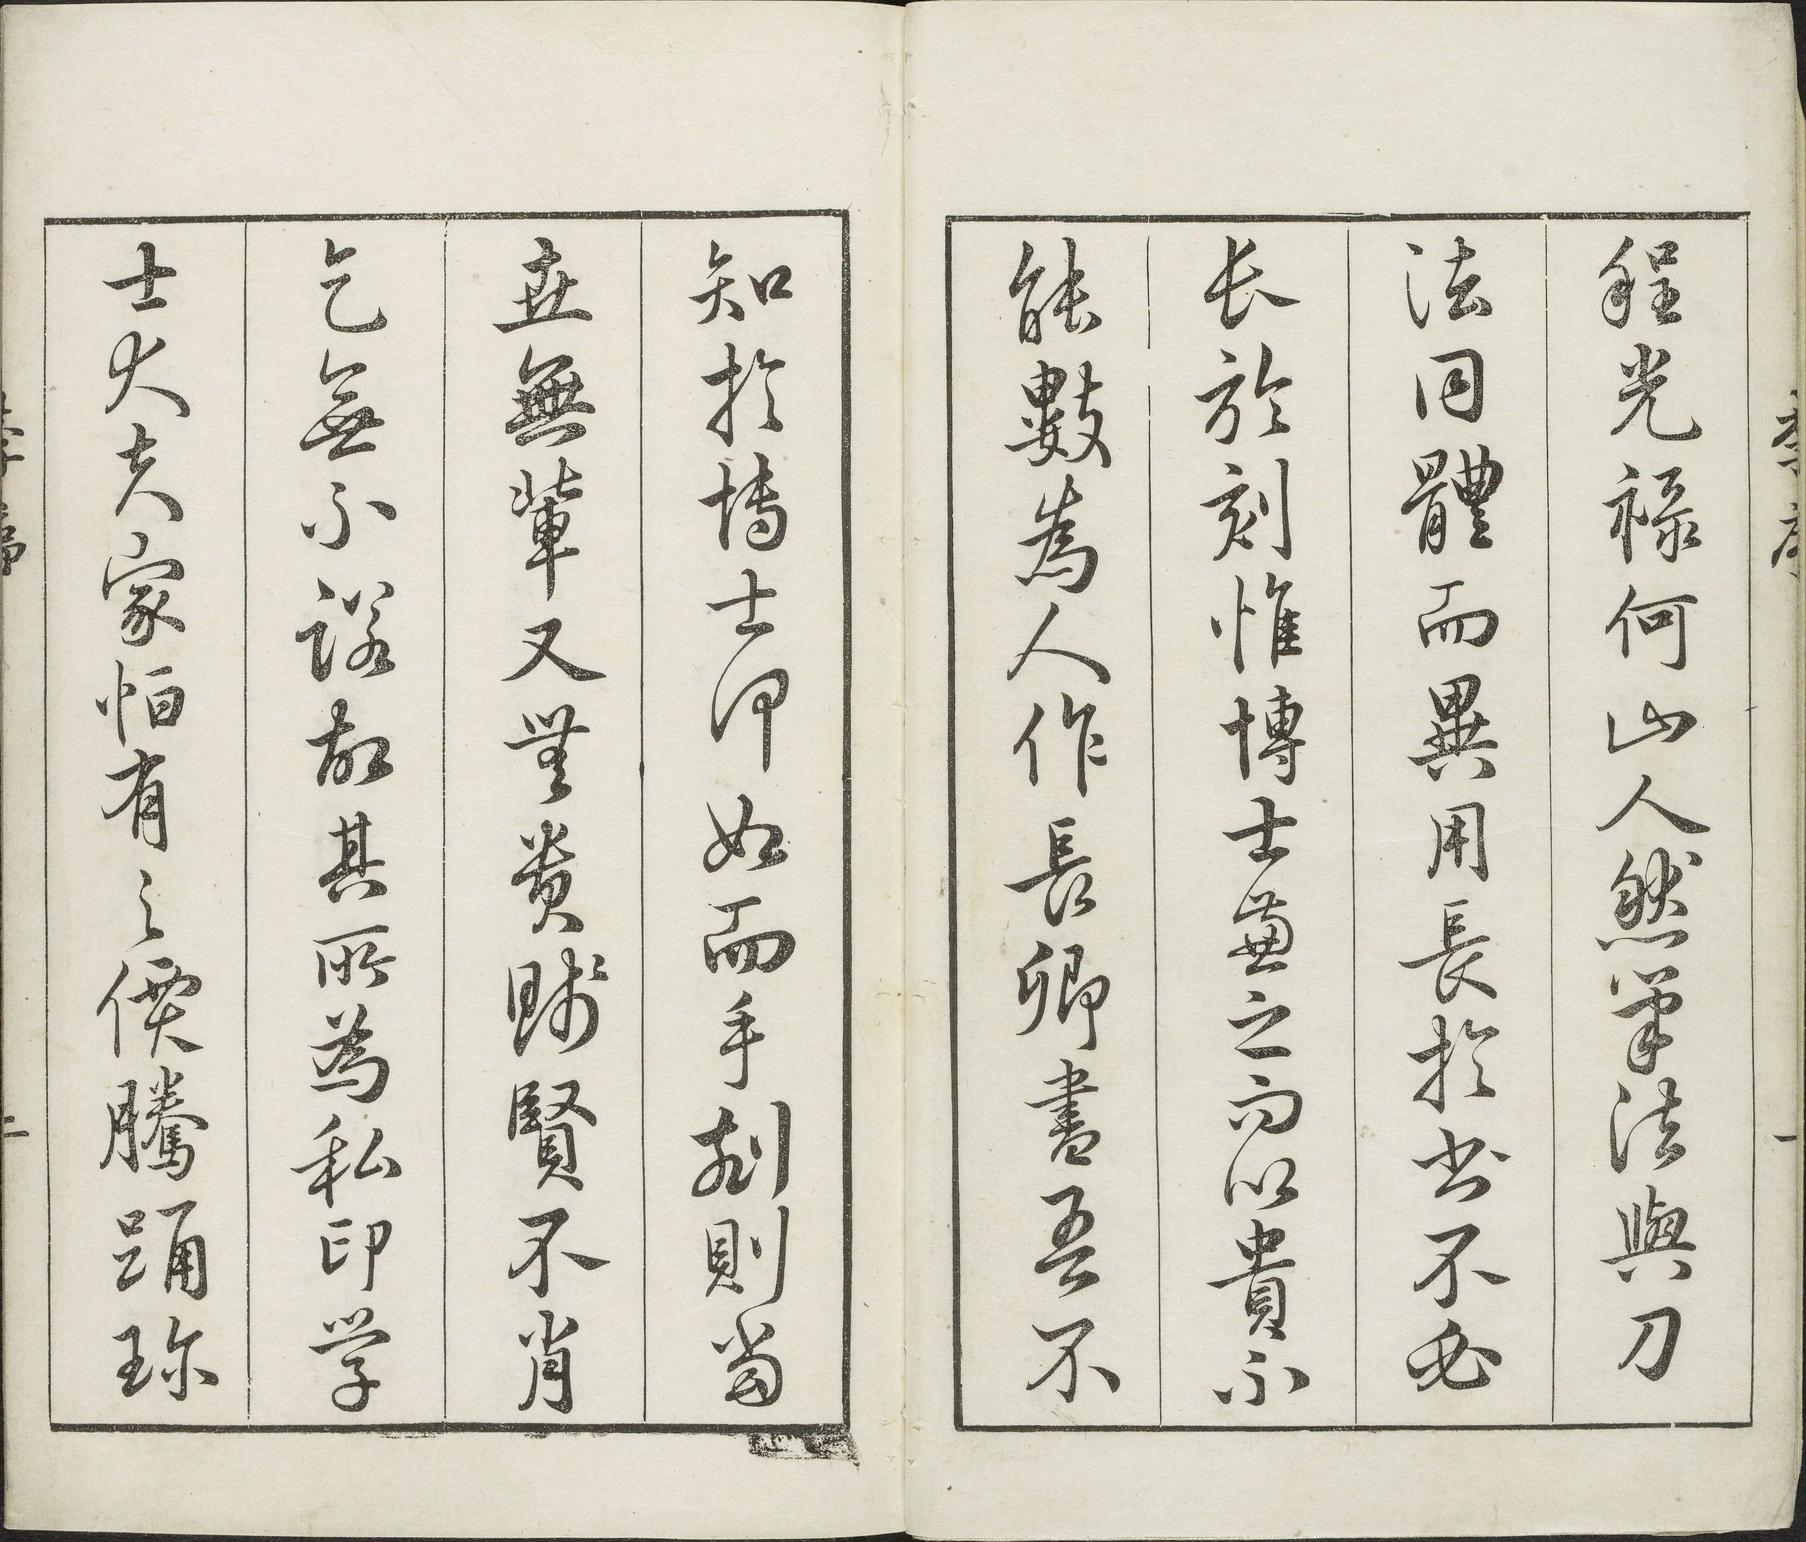 程光祿何山人然筆法與刀
法同體而異用長於書不必
长於刻惟博士兼之而以貴不
能數為人作長卿書吾不
知於博士何如而手刻則當
世無輩又無貴賤賢不肖
乞無不諾故其所為私印学
士大夫家怕有之價騰踊珎